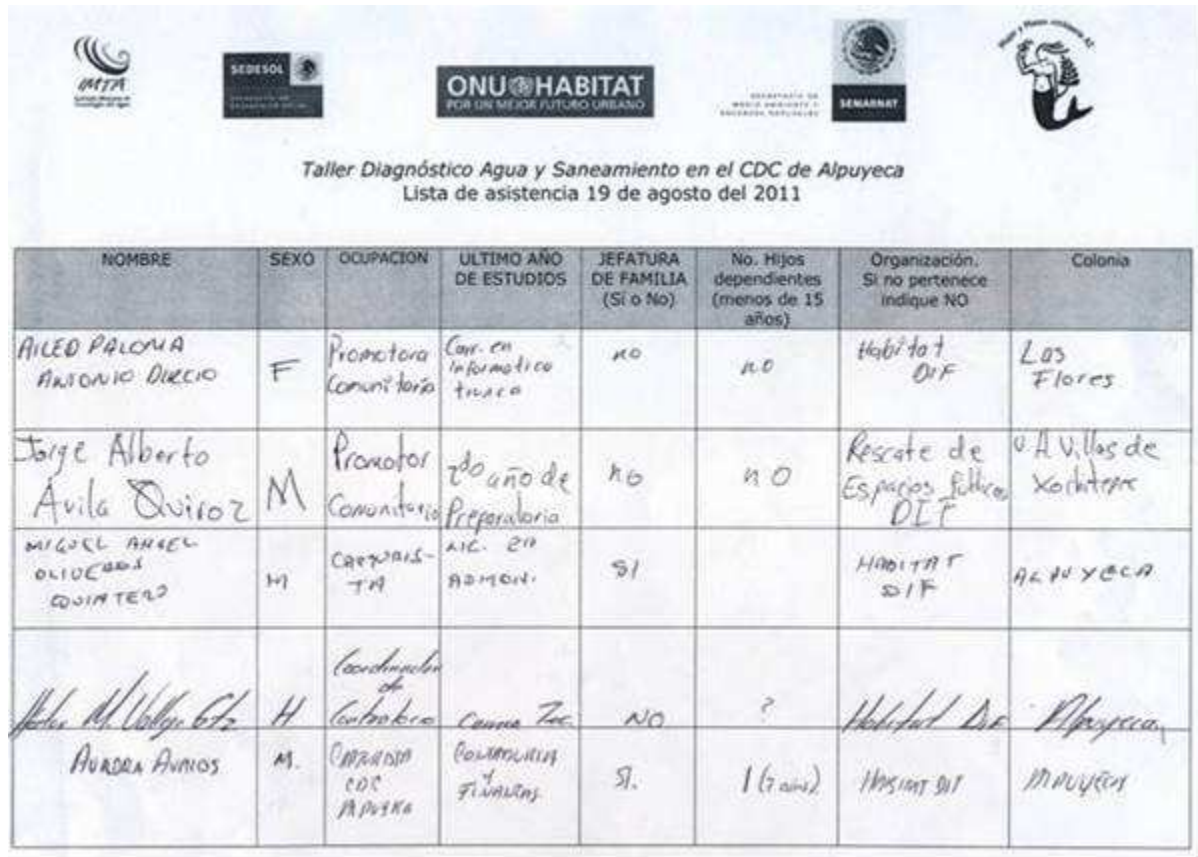 IMTA
SEDESOL
ONU HABITAT
POR UN MEJOR FUTURO URBANO
SECRETARÍA DE
MEDIO AMBIENTE Y
RECURSOS NATURALES
SEMARNAT
Taller Diagnóstico Agua y Saneamiento en el CDC de Alpuyeca
Lista de asistencia 19 de agosto del 2011
NOMBRE SEXO OCUPACION ULTIMO AÑO DE ESTUDIOS JEFATURA DE FAMILIA (Sí o No) No. Hijos dependientes (menos de 15 años) Organización. Si no pertenece indique NO Colonia
AILED PALOMA
ANTONIO DIRCIO
F
Promotora
Comunitaria
Carr. en
Informatica
trunca
no
no
Habitat
DIF
Las
Flores
Jorge Alberto
Avila Quiroz
M
Promotor
Comunitario
2do año de
Preparatoria
no
no
Rescate de
Espacios Públicos
DIF
U.H Villas de
Xochitepec
MIGUEL ANGEL
OLIVEROS
QUINTERO
M
TA
LIC. EN
ADMON.
SI
HABITAT
DIF
ALPUYECA
M. Vallejo Gtz
H
Coordinador
de
NO
?
Habitat DIF
Alpuyeca
AURORA
M.
CDC
Y
FINANZAS
SI.
1 (7 años)
HABITAT DIF
Alpuyeca